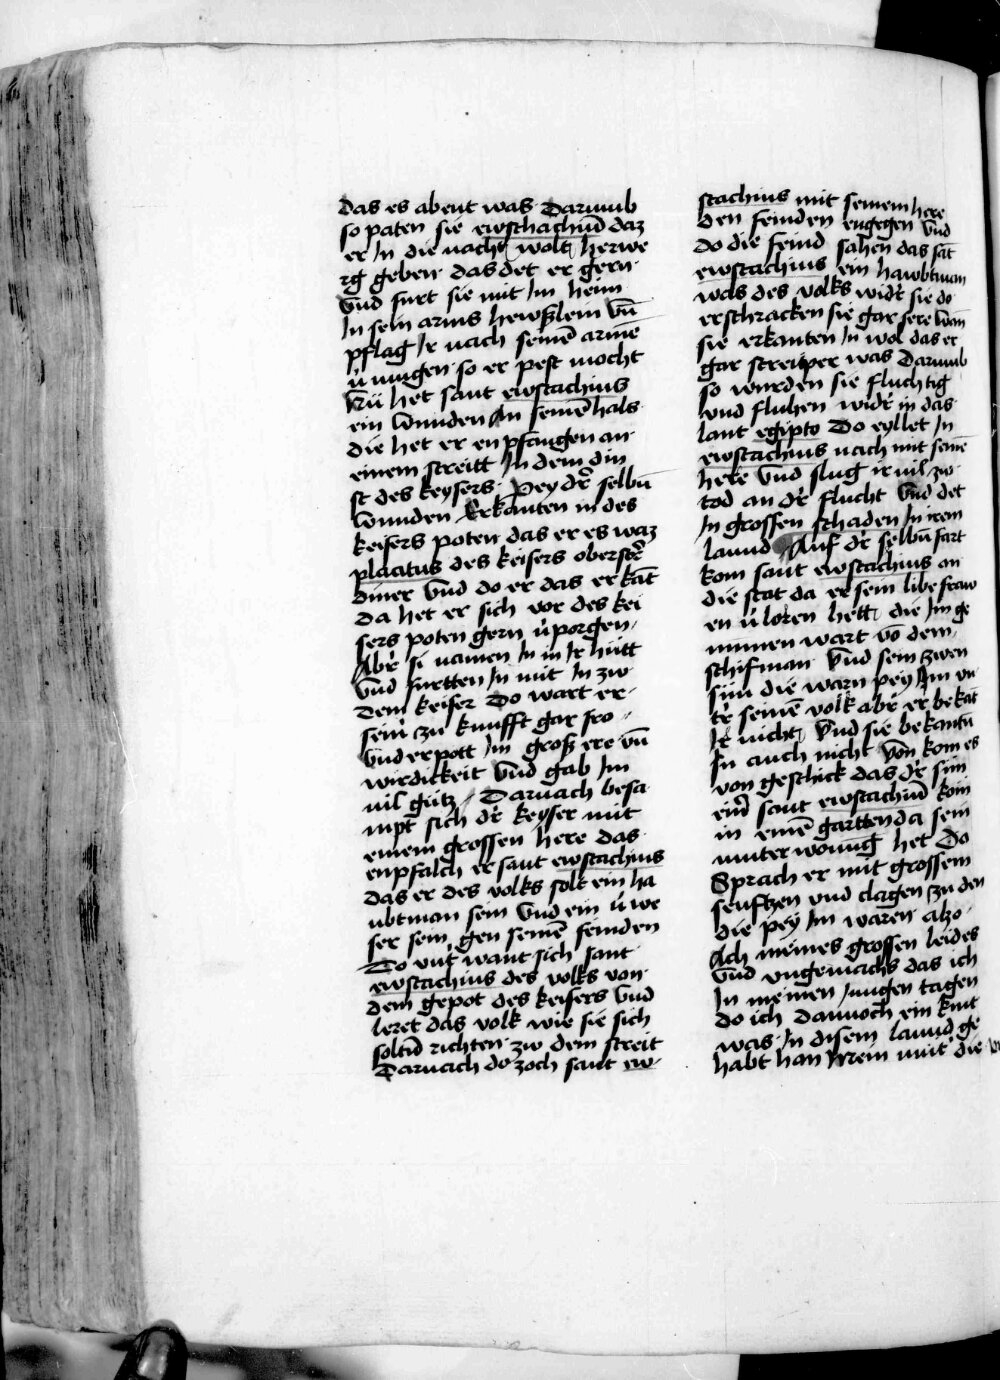 das es abent was Darumb
so paten sie ewsthachiū daz
er In die nacht wolt herwe
rg geben das det er gern
Vnd furt sie mit Im heim
In sein arms hewßlein Vn̄
pflag Ir nach seinē armē
v̈mugen so er pest mocht
Nu het sant ewstachius
ein wunden An seinē hals
die het er enpfangen an
einem streitt In dem din
st des keysers Pey dr̄ selbn̄
wunden Erkanten in des
keisers poten das er es waz
placitus des keisers oberstr̄
diner Vnd do er das erkāt
da het er sich vor des kei
sers poten gern v̈porgen
Abr̄ si namen In in Ir hutt
Vnd furtten In mit In zw
dem keiser Do wart er
seinr̄ zu kunfft gar fro
Vnd erpott Im groß ere vn̄
wirdickeit Vnd gab Im
vil gutz Darnach besa
mpt sich dr̄ keyser mit
einem grossen here das
enpfalch er sant ewstachius
das er des volks solt ein ha
ubtman sein Vnd ein v̈we
ser sein gen seinē feinden
Do vnt̄ want sich sant
ewstachius des volks von
dem gepot des keisers Vnd
leret das volk wie sie sich
soltn̄ richten zw dem streit
Darnach do zoch sant ew
stachius mit seinem here
den feinden engegen Vnd
do die feind sahen das sāt
ewstachius ein hawbtman
was des volks widr̄ sie do
erschracken sie gar sere wān
sie erkanten In wol das er
gar streitper was Darumb
so wurden sie fluchtig
vnd fluhen widr̄ in das
lant egipto Do eyllet In
ewstachius nach mit seinē
here Vnd slug ir vil zw
tod an dr̄ flucht Vnd det
In grossen schaden In irem
lannd Auf dr̄ selbn̄ fart
kom sant ewstachius an
die stat da er sein libe fraw
en v̈loren hett die Im ge
nummen wart vō dem
schifman Vnd sein zwen
sun die warn pey Im vn
tr̄ seinē volk abr̄ er bekāt
Ir nicht Vnd sie bekantn̄
In auch nicht Von kom es
von geschick das dr̄ sun
einr̄ sant ewstachiū kom
in einē gartten da sein
muter wonūg het Do
Sprach er mit grossem
seuftzen vnd clagen zu den
die pey Im waren also
Ach meines grossen leides
Vnd vngemachs das ich
In meinen Jungen tagen
do ich dannoch ein kint
was In disem lannd ge
habt han Wein mut̄ die